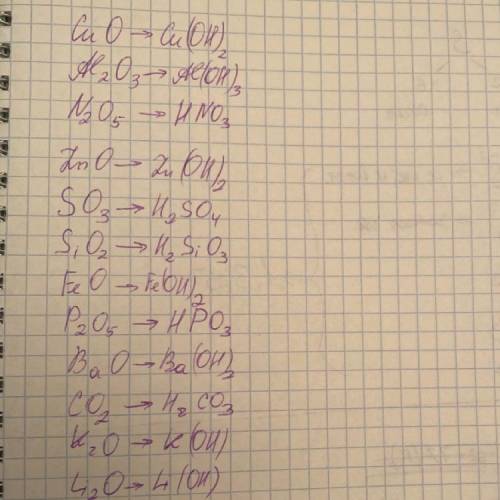 CuO → Cu(OH)₂
Al₂O₃ → Al(OH)₃
N₂O₅ → HNO₃
ZnO → Zn(OH)₂
SO₃ → H₂SO₄
SiO₂ → H₂SiO₃
FeO → Fe(OH)₂
P₂O₅ → HPO₃
BaO → Ba(OH)₂
CO₂ → H₂CO₃
K₂O → K(OH)
Li₂O → Li(OH)